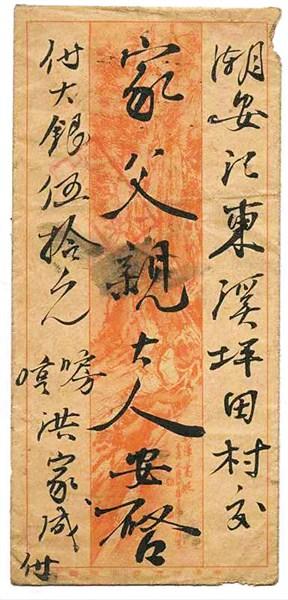 潮安江東溪坪田村交
家父親大人安啓
付大銀伍拾元
洪家成付